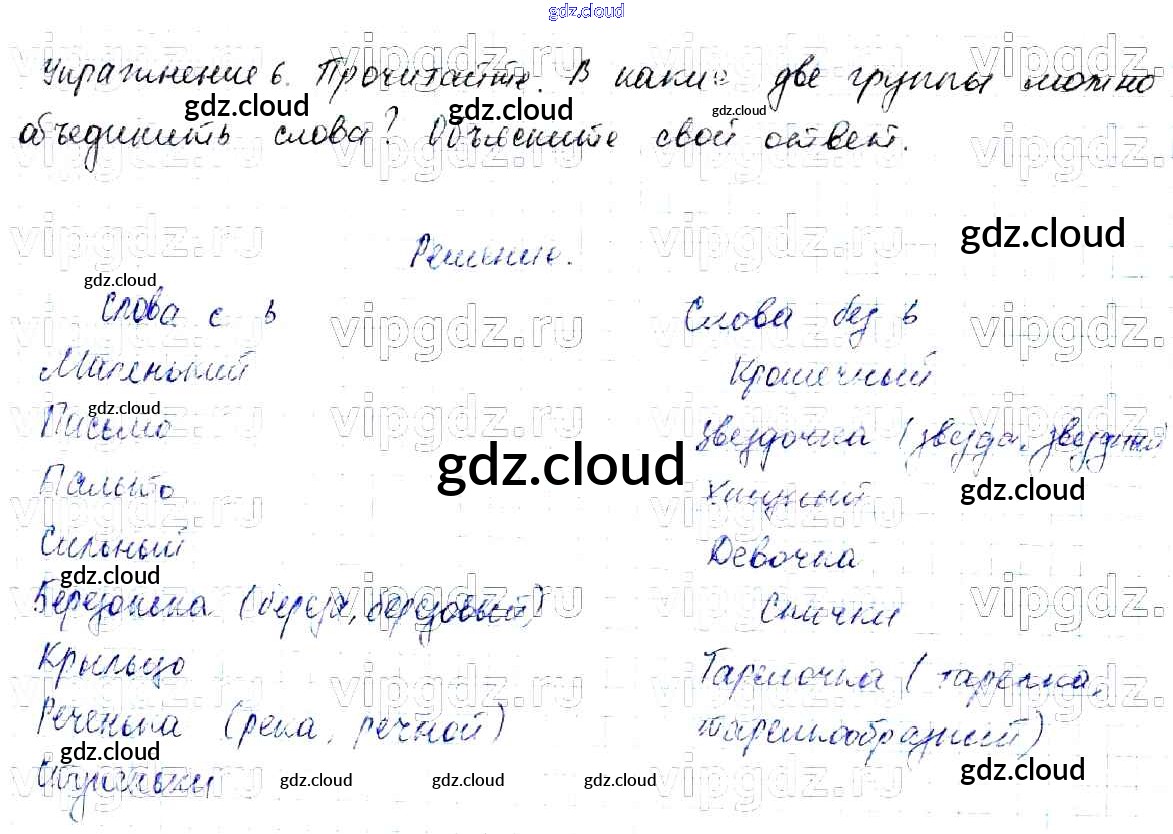 gdz.cloud
Упражнение 6. Прочитайте. В какие две группы можно
объединить слова? Объясните свой ответ.
gdz.cloud gdz.cloud gdz.cloud
vipgdz.ru vipgdz.ru vipgdz.
Решение.
gdz.cloud
gdz.cloud
Слова с ь
Слова без ь
Маленький
Крошечный
gdz.cloud
Письмо
Звездочка (звезда, звездный
gdz.cloud
Пальто
Хищный
gdz.cloud
Сильный
Девочка
gdz.cloud
Березонька (береза, березовый)
Спички
Крыльцо
Тарелочка (тарелка,
Реченька (река, речной)
тарелкообразный)
gdz.cloud
gdz.cloud
gdz.cloud gdz.cloud gdz.cloud